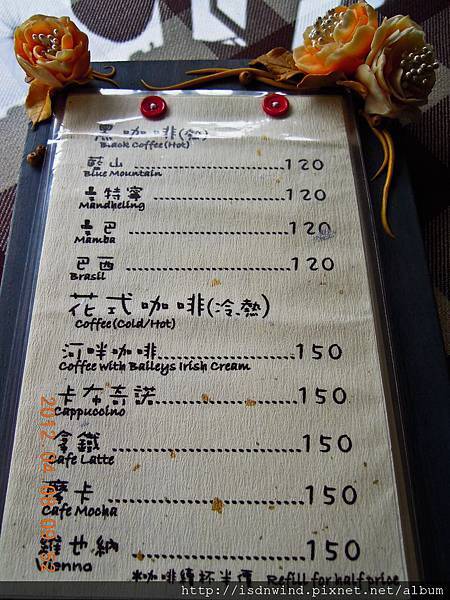 黑咖啡(熱)
Black Coffee(Hot)
藍山 120
Blue Mountain
曼特寧 120
Mandheling
曼巴 120
Mamba
巴西 120
Brasil
花式咖啡(冷、熱)
Coffee(Cold/Hot)
河畔咖啡 150
Coffee with Baileys Irish Cream
卡布奇諾 150
Cappuccino
拿鐵 150
Cafe Latte
摩卡 150
Cafe Mocha
維也納 150
Vienna
*咖啡續杯半價 Refill for half price
http://isdnwind.pixnet.net/album